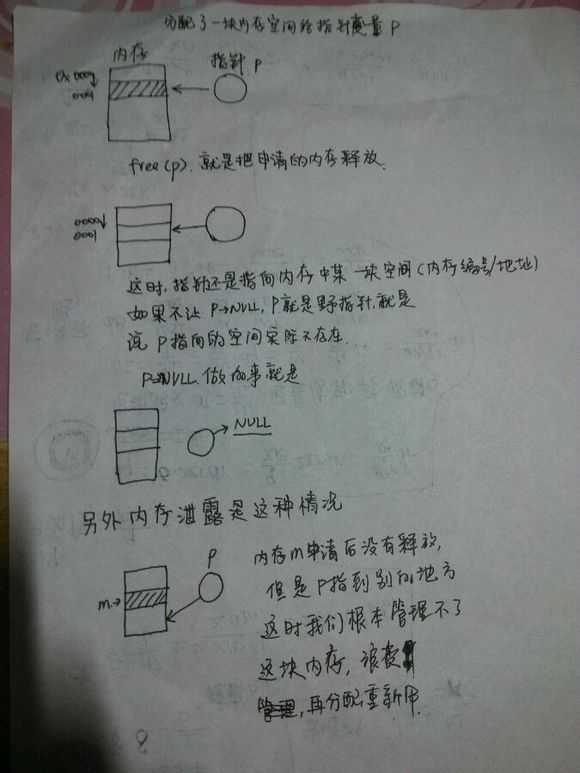 分配了一块内存空间给指针变量 P
内存
指针 P
0x0000
0001
free(p). 就是把申请的内存释放.
0000
0001
这时, 指针还是指向内存中某一块空间(内存编号/地址)
如果不让 P→NULL, P就是野指针, 就是
说 P指向的空间实际不存在.
P=NULL. 做的事就是
NULL
另外内存泄露是这种情况
P
m→
内存m申请后没有释放,
但是P指到别的地方
这时我们根本管理不了
这块内存,
管理, 再分配重新用.